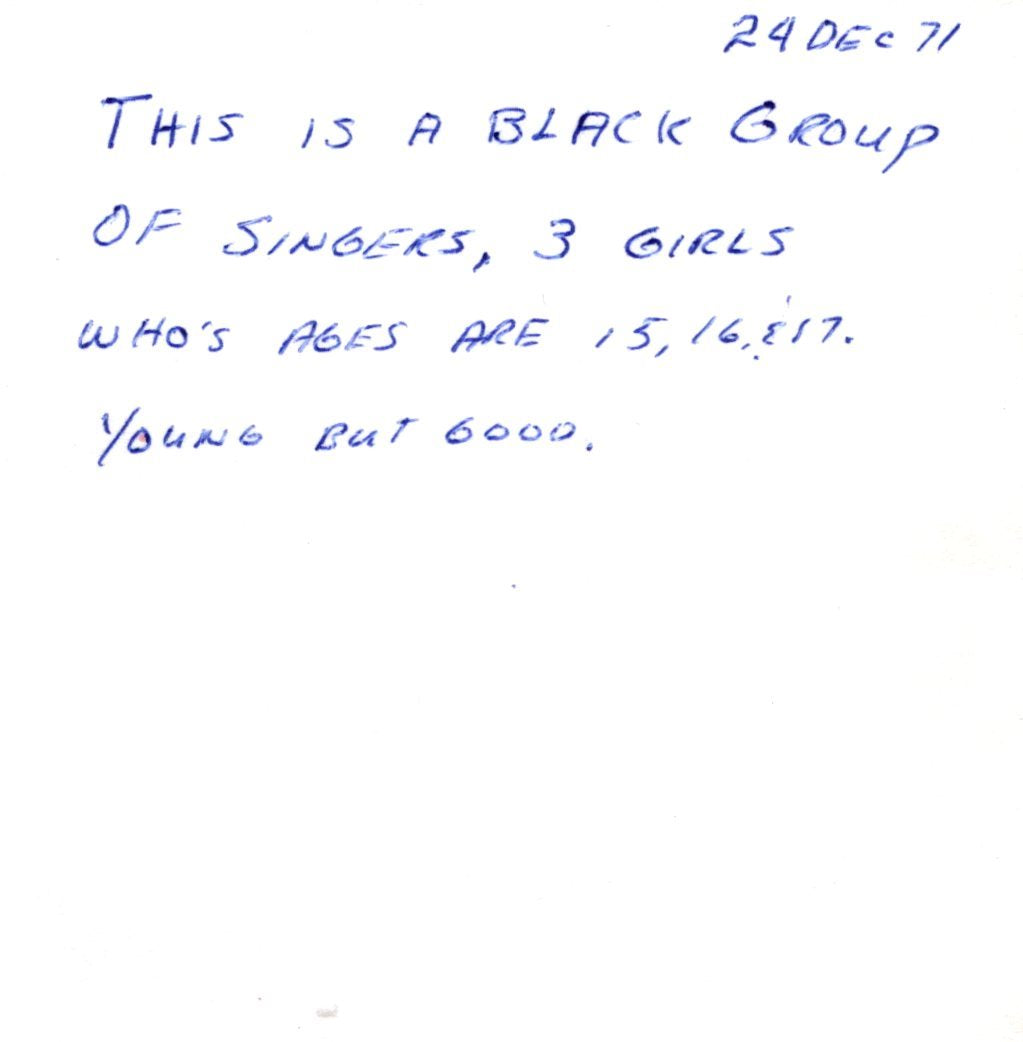 24 DEC 71
THIS IS A BLACK GROUP
OF SINGERS, 3 GIRLS
WHO'S AGES ARE 15, 16, & 17.
YOUNG BUT GOOD.